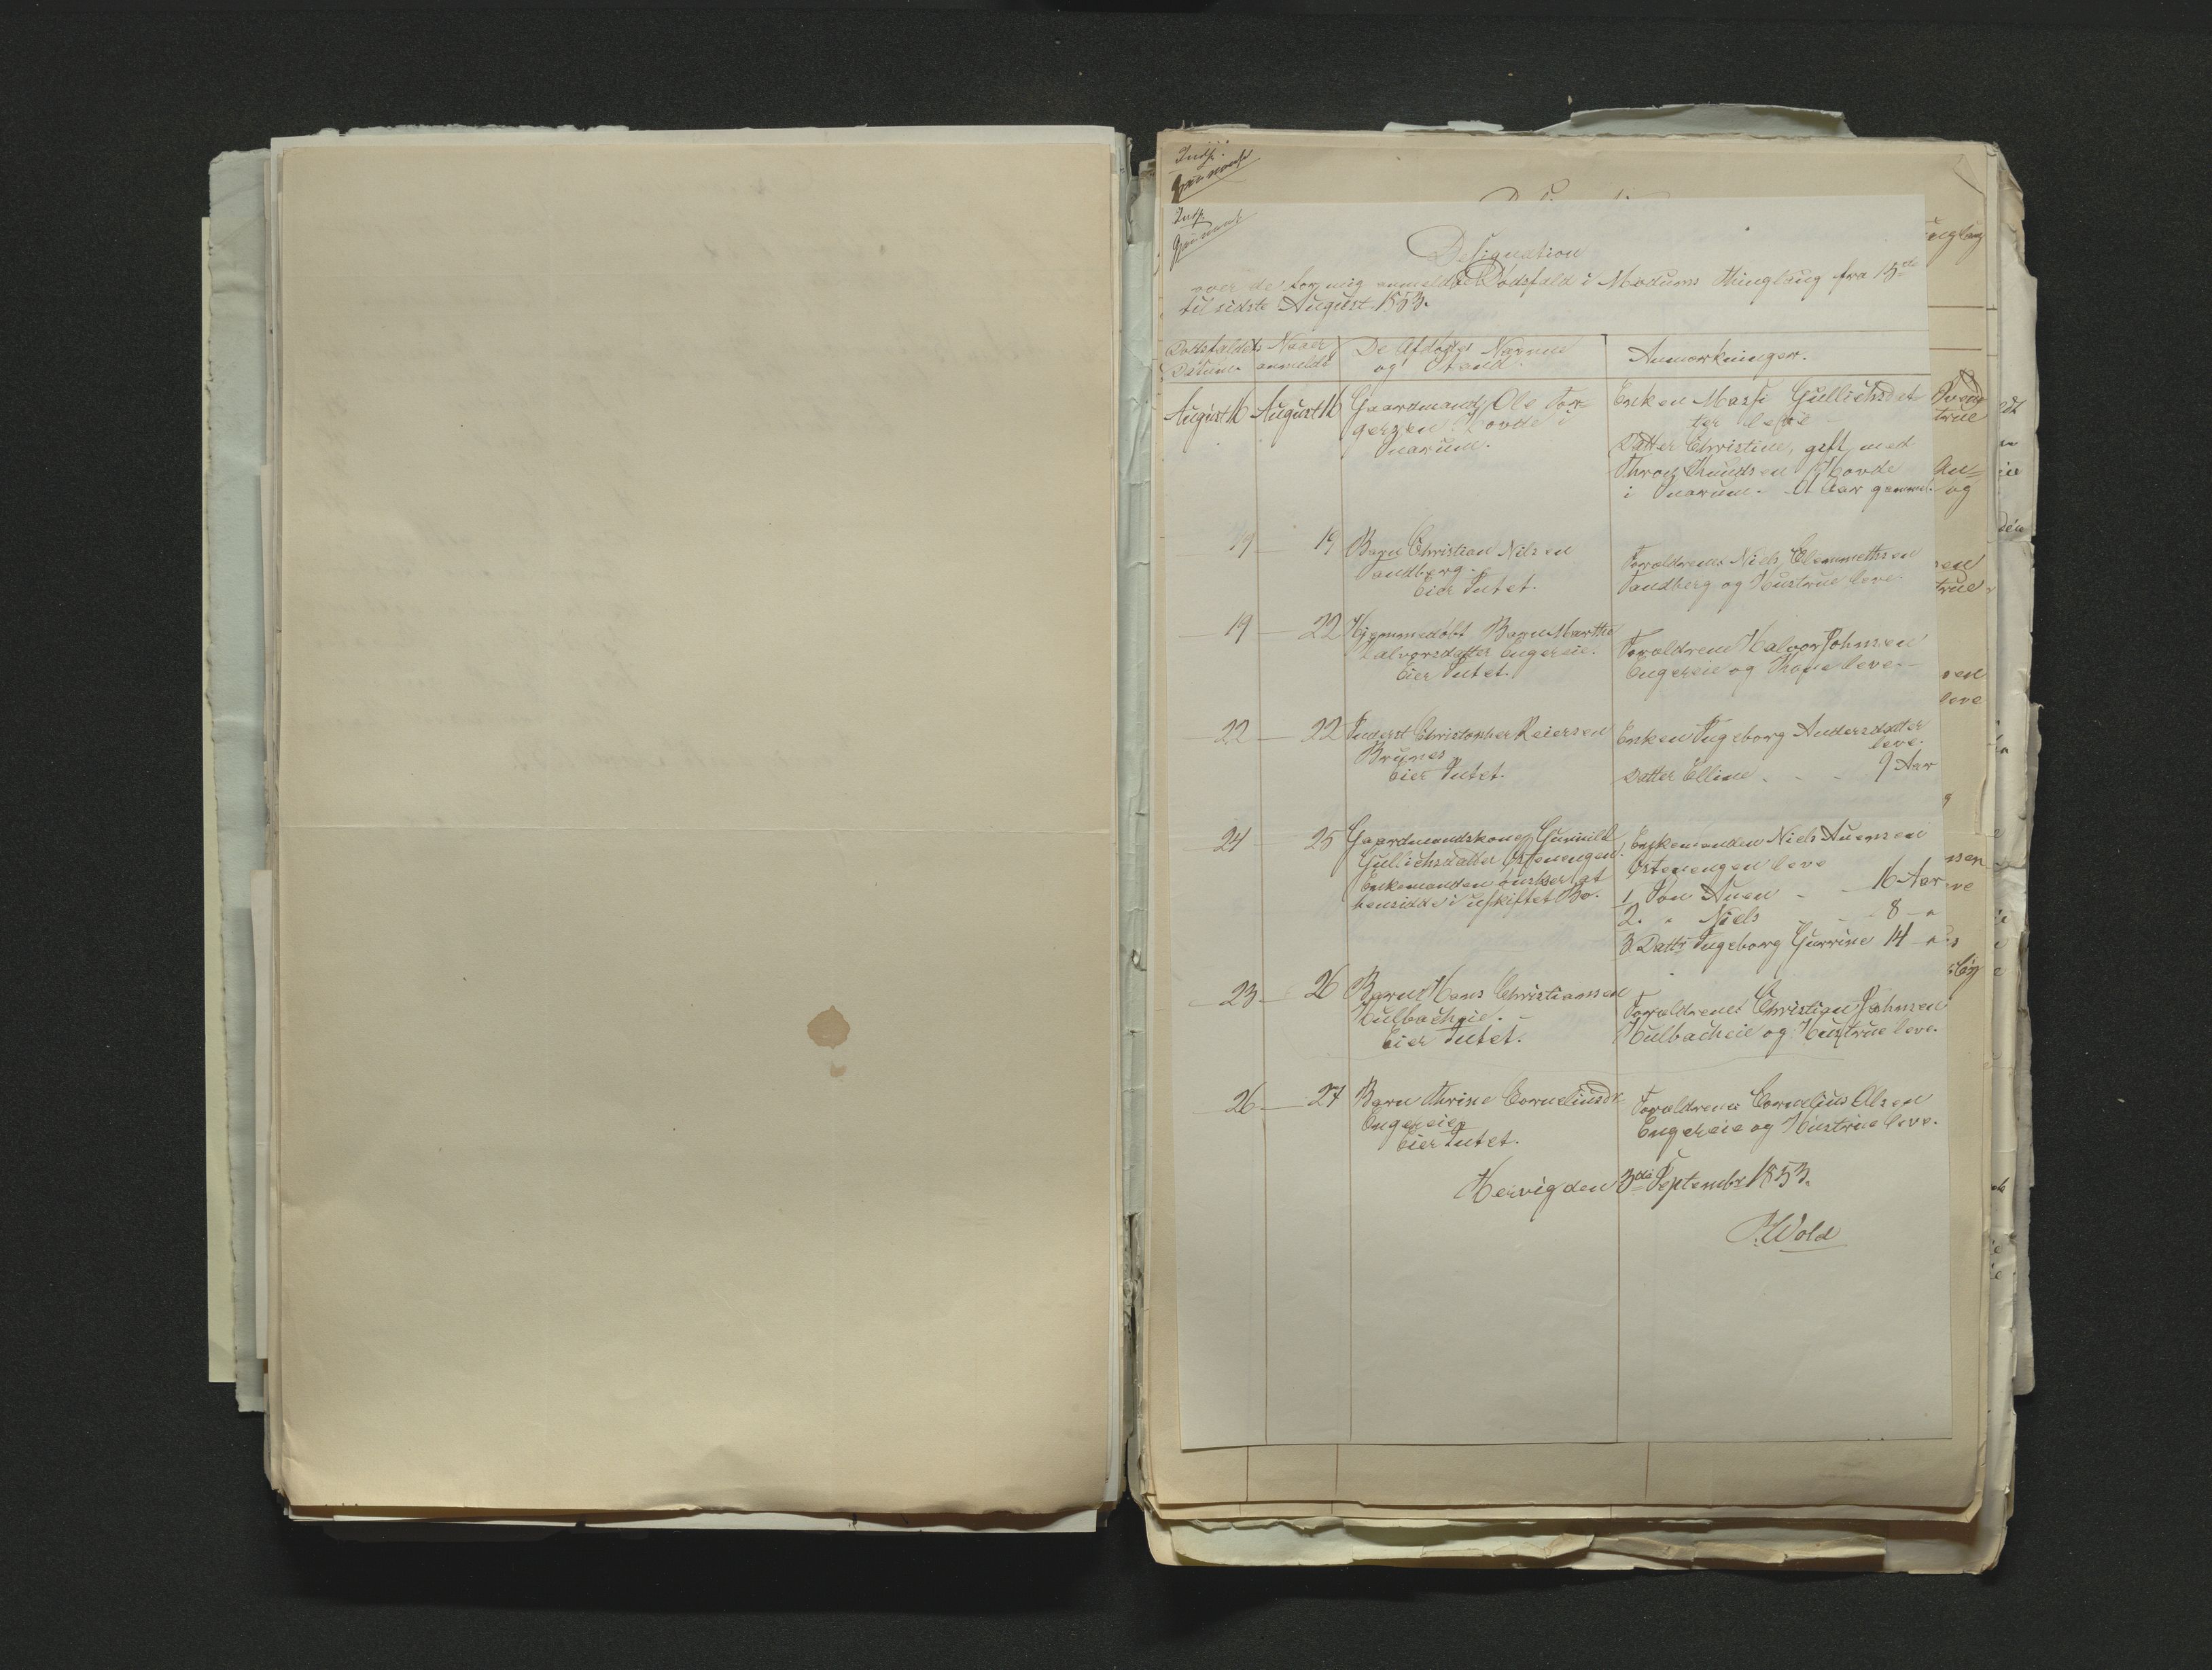 Indf.
Indf.
Designation
over de for mig anmeldte Dødsfald i Modums Thinglaug fra 15de
til sidste August 1853.
Dødsfaldets Datum
Naar anmeldt
De Afdødes Navne og Stand
Anmærkninger.
August 16 August 16 Gaardmand Ole Tor-
gersen Hovde i
Snarum.
Enken Marji Gullichsdat
ter leve
Datter Christine, gift med
Thron Knudsen Hovde
i Snarum. Aar gammel.
19 19 Barn Christian Nilsen
Sandberg.
Eier Intet.
Forældrene Niels Clemmethsen
Sandberg og Hustrue leve.
19 22 Hjemmedøbt Barn Marthe
Halvorsdatter Engereie.
Eier Intet.
Forældrene Halvor Johnsen
Engereie og Kone leve.
22 22 Inderst Christopher Reiersen
Brunes
Eier Intet.
Enken Ingeborg Andersdatter
leve.
Datter Elline - - - 9 Aar
24 25 Gaardmandskone Gunnild
Gullichsdatter Østenengen.
Enkemanden ønsker at
hensidde i uskiftet Bo.
Enkemanden Niels Auensen
Østenengen leve
1, Søn Auen - - 16 Aar
2. " Niels - - 8 - "
3. Dattr Ingeborg Gurrine 14 - "
23 26 Barn Hans Christiansen
Hulbacheie.
Eier Intet.
Forældrene Christian Johnsen
Hulbacheie og Hustrue leve.
26 27 Barn Thrine Corneliusdr
Engereie
Eier Intet.
Forældrene Cornelius Olsen
Engereie og Hustrue leve.
Hervig den 3die Septembr 1853.
Wold